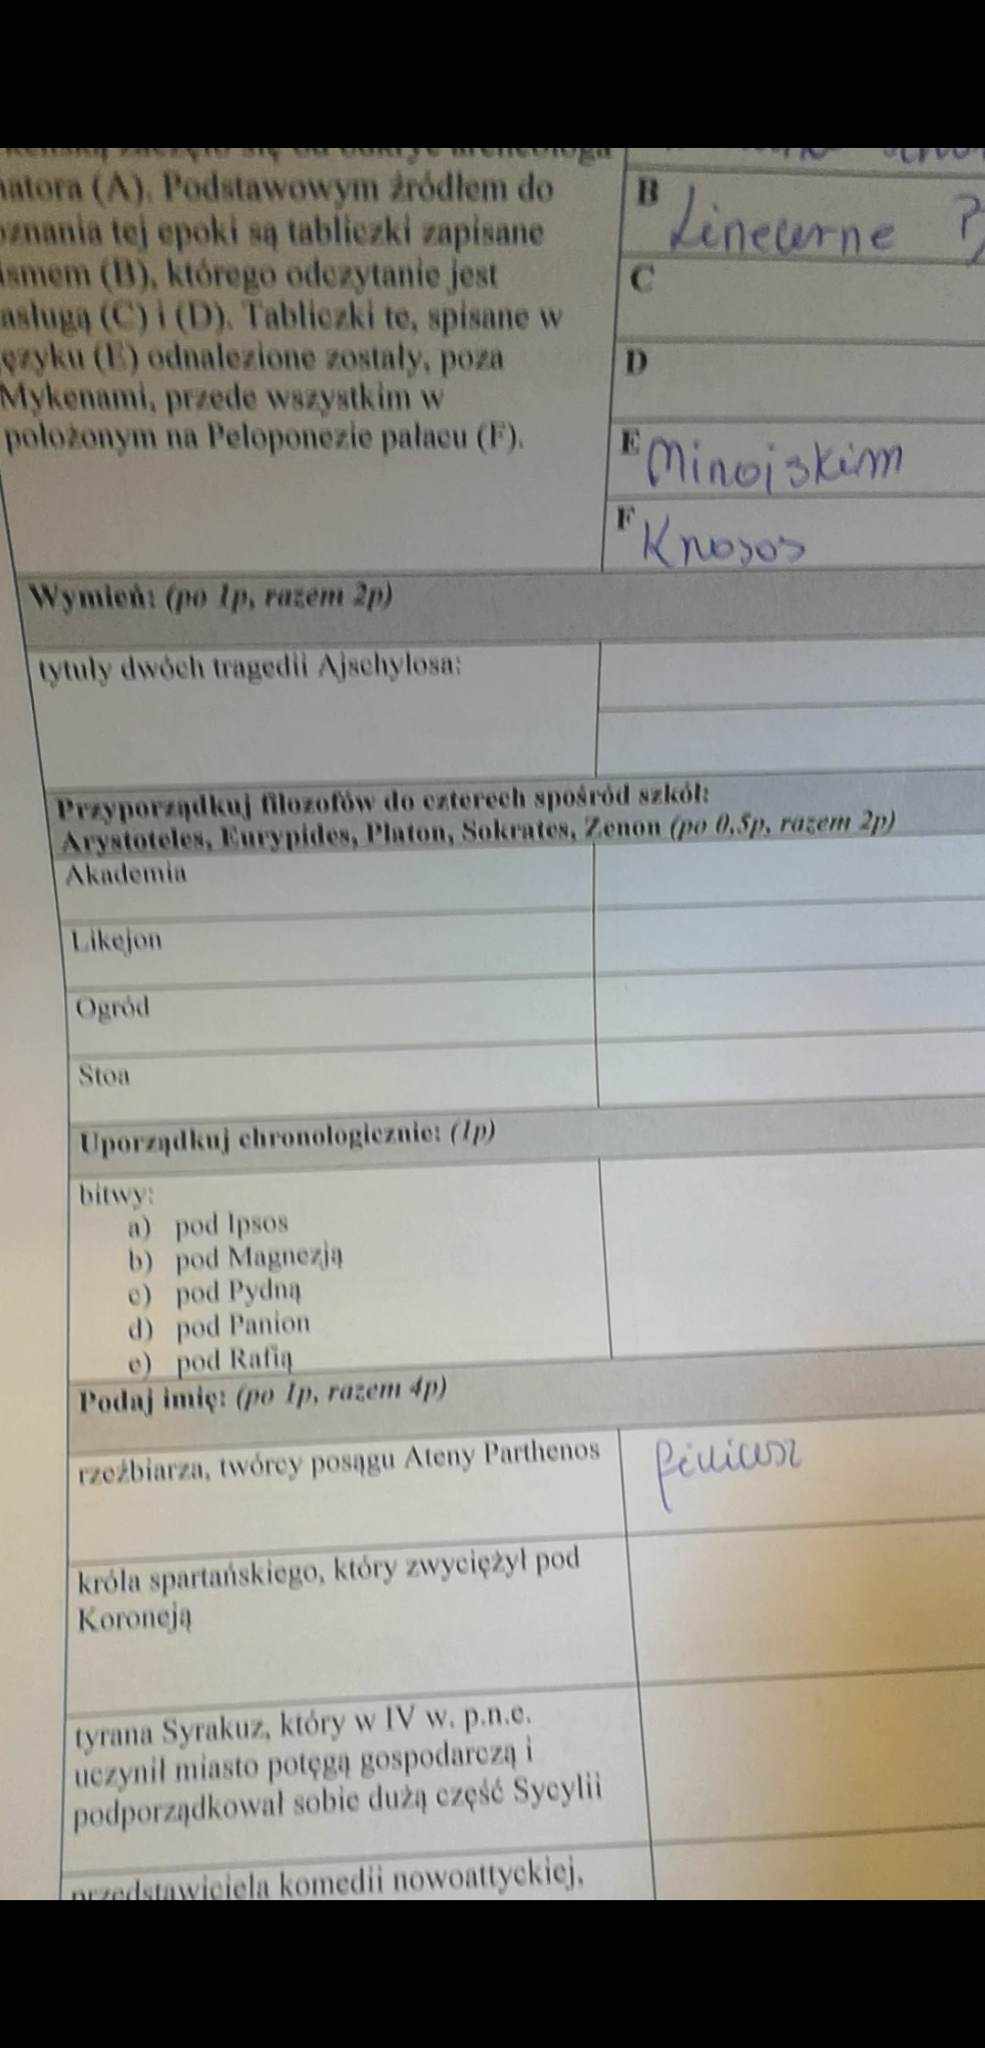 natora (A). Podstawowym źródłem do
oznania tej epoki są tabliczki zapisane
ismem (B), którego odczytanie jest
asługą (C) i (D). Tabliczki te, spisane w
ęzyku (E) odnalezione zostały, poza
Mykenami, przede wszystkim w
położonym na Peloponezie pałacu (F).
B Linearne B
C
D
E Minojskim
F Knosos
Wymień: (po 1p, razem 2p)
tytuły dwóch tragedii Ajschylosa:
Przyporządkuj filozofów do czterech spośród szkół:
Arystoteles, Eurypides, Platon, Sokrates, Zenon (po 0,5p, razem 2p)
Akademia
Likejon
Ogród
Stoa
Uporządkuj chronologicznie: (1p)
bitwy:
a) pod Ipsos
b) pod Magnezją
c) pod Pydną
d) pod Panion
e) pod Rafią
Podaj imię: (po 1p, razem 4p)
rzeźbiarza, twórcy posągu Ateny Parthenos
króla spartańskiego, który zwyciężył pod
Koroneją
tyrana Syrakuz, który w IV w. p.n.e.
uczynił miasto potęgą gospodarczą i
podporządkował sobie dużą część Sycylii
przedstawiciela komedii nowoattyckiej,